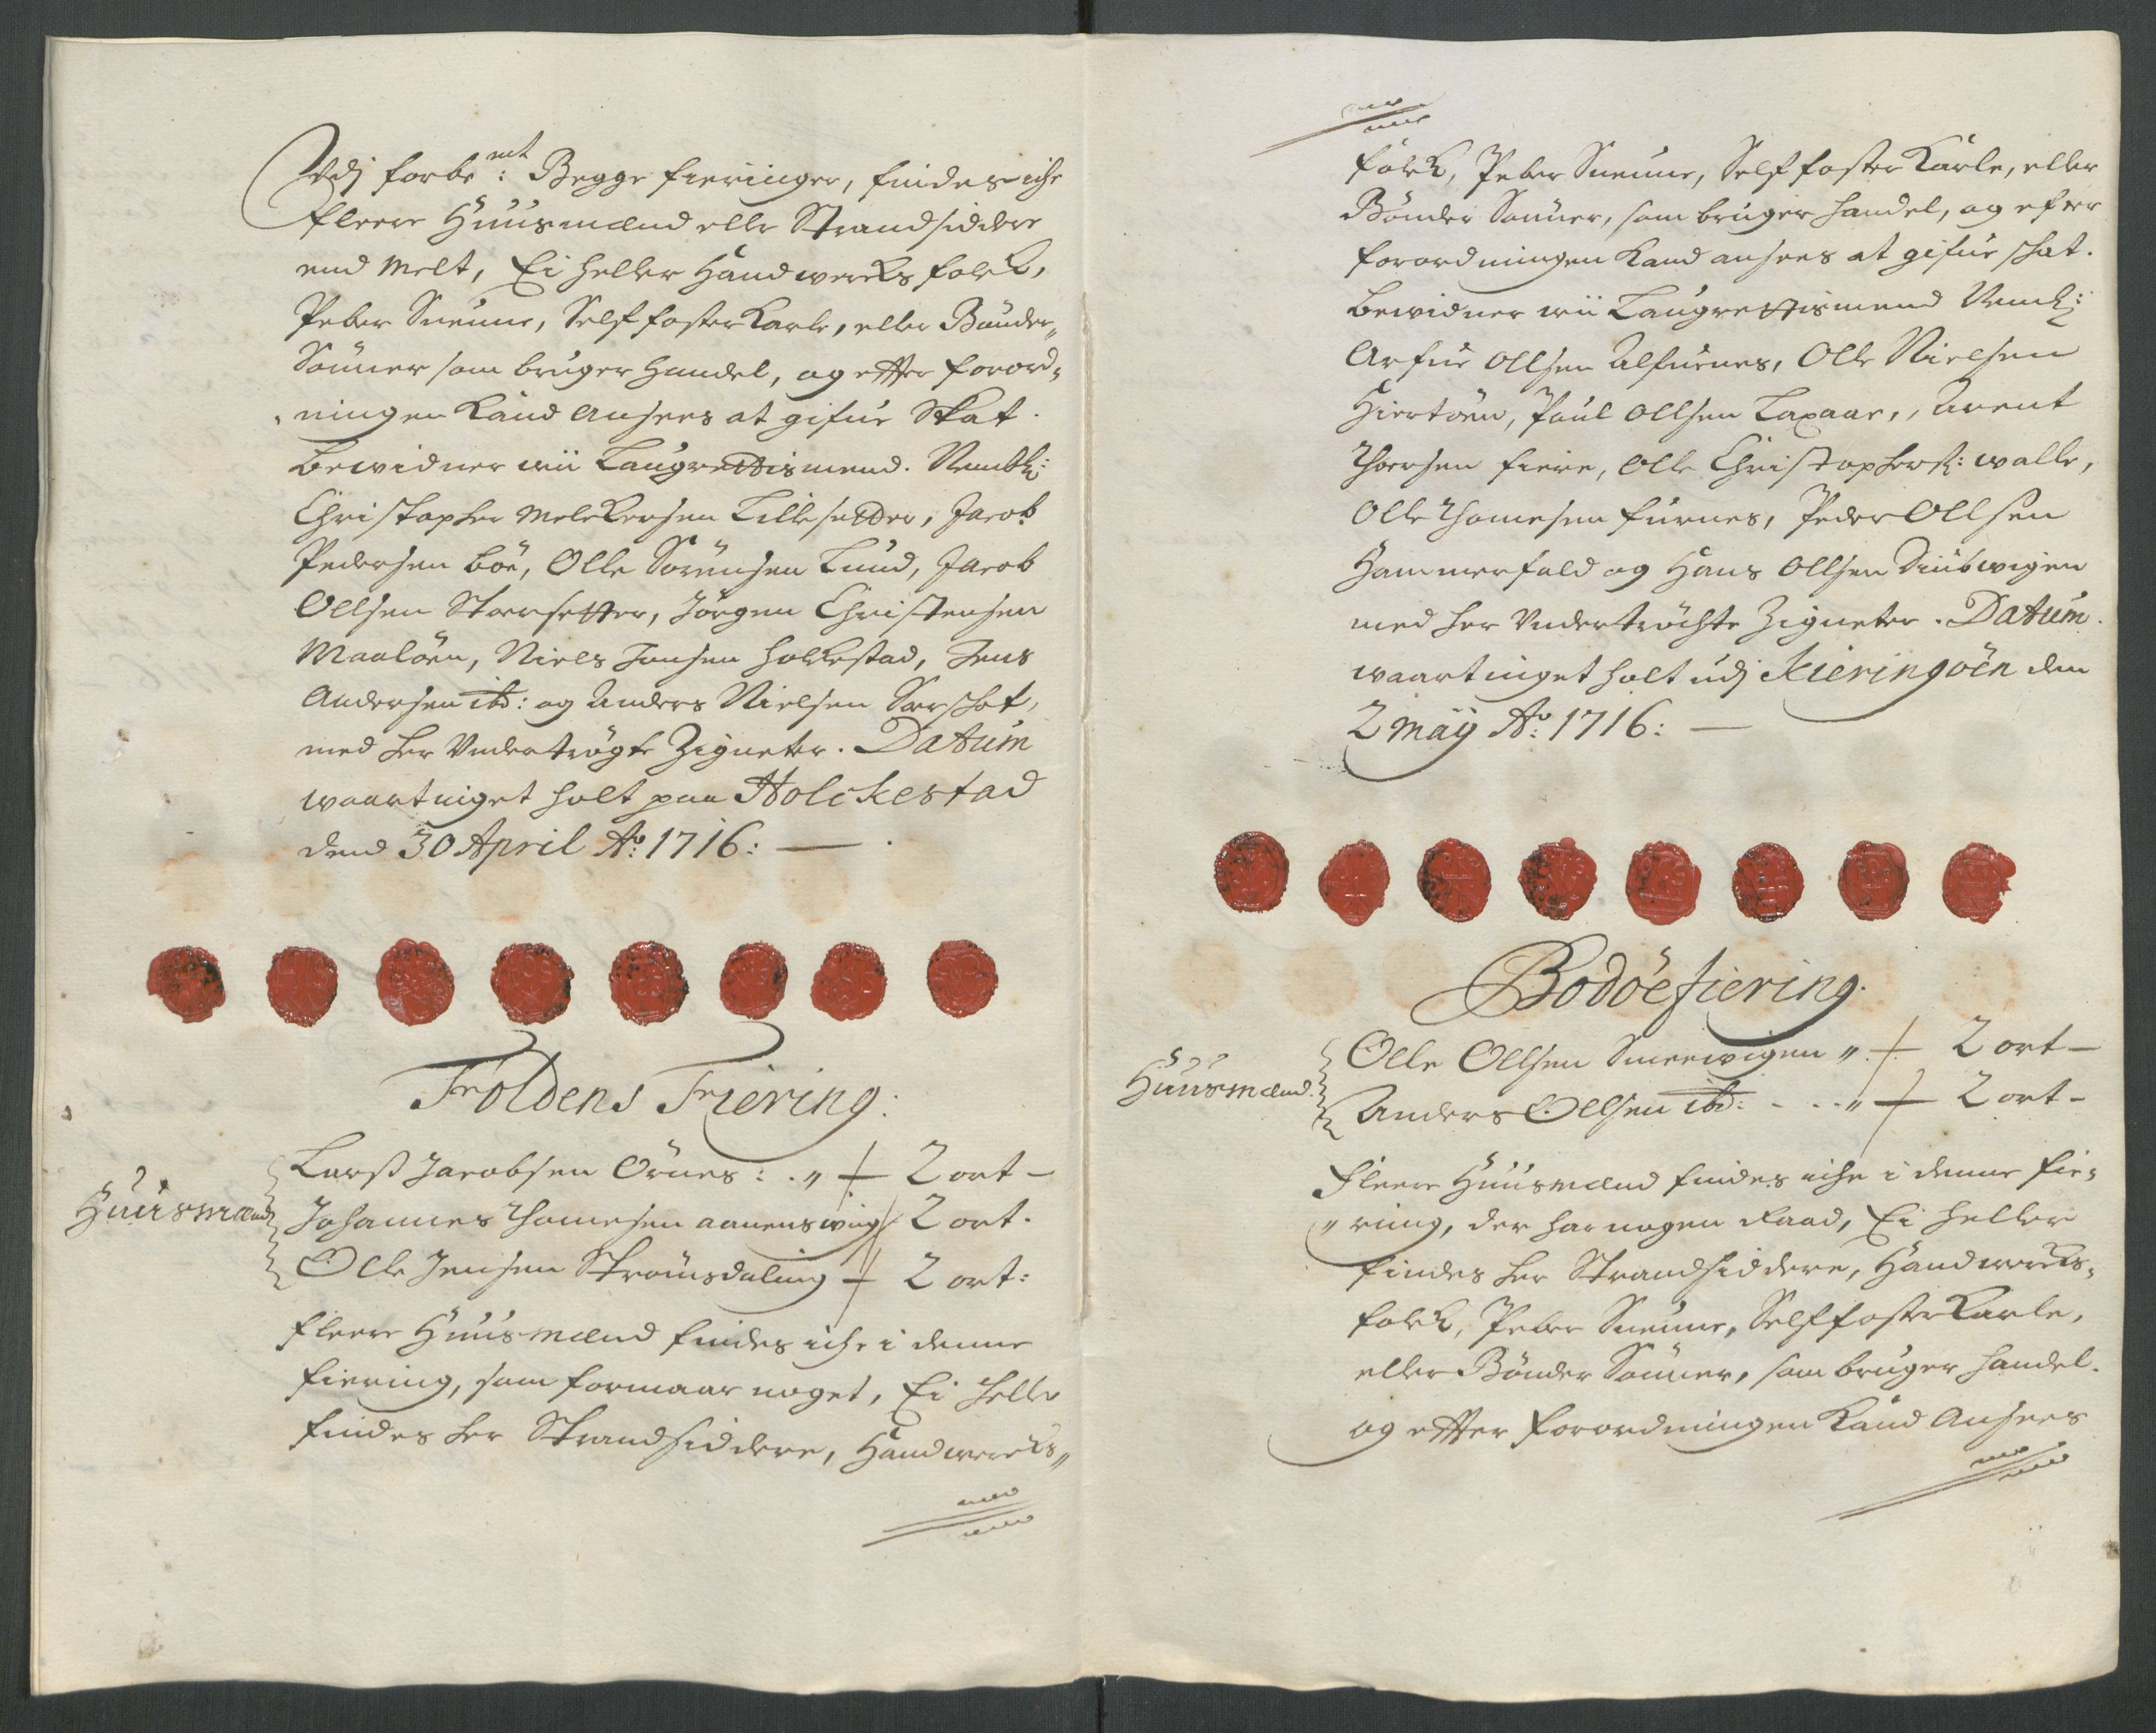 Udj forbe^mt: Begge fieringer, findes iche
fleere Huusmænd elle Strandsiddere
end Melt, Ei heller Handwercks folck,
Peber Suenne, Selffoster Karle, eller Bønder„
Sønner som bruger Handel, og effter forord„
„ningen Kand Ansees at gifue Skat.
bewidner wii Laugrettismend. Nembl:
Christopher Melckersen Lillesetter, Jacob
Pedersen böe, Olle Sörensen Lund, Jacob
Ollsen Storsetter, Jörgen Christensen
Maalöen, Niels Jensen Holkestad, Jens
Andersen ibd: og Anders Nielsen
med her Undertrögte Zigneter. Datum
waartinget holt paa Holckestad
dend 30 April Ao: 1716: —
Foldens Fiering:
Huusmænd
Larss Jacobsen Örnes: „ 2 ort —
Johannes Thomesen aanenswiig 2 ort.
Olle Jensen Strömsdaling 2 ort:
fleere Huusmænd findes iche i denne
fiering, som formaar noget, Ei heller
findes her Strandsiddere, Handwercks„
folck, Peber Suenne, Selffoster Karle, eller
Bönder Sönner, som bruger handel, og efter
forordningen Kand ansees at gifue schat.
bewidner wii Laugrettismend Neml:
Arfue Ollsen Alfuenes, Olle Nielsen
Hiertöen, Poul Ollsen Laxaar, Arent
Thorsen fiere, Olle Christophers: walle,
Olle Thomesen furnes, Peder Ollsen
Hammerfald og Hans Ollsen Diubwigen
med her Undertröchte Zigneter. Datum
waartinget holt udj Kieringöen den
2 May Ao: 1716: —
Bodöefiering.
Huusmænd.
Olle Ollsen Smeewigen „ 2 ort —
Anders Ollsen ibd: - - - „ 2 ort —
Fleere Huusmænd findes iche i denne fie„
„ring, der har nogen Raad, Ei heller
findes her Strandsiddere, Handwercks„
folck, Peber Suenne, Selffoster Karle,
eller Bönder Sönner, som bruger handel.
og effter forordningen Kand Ansees